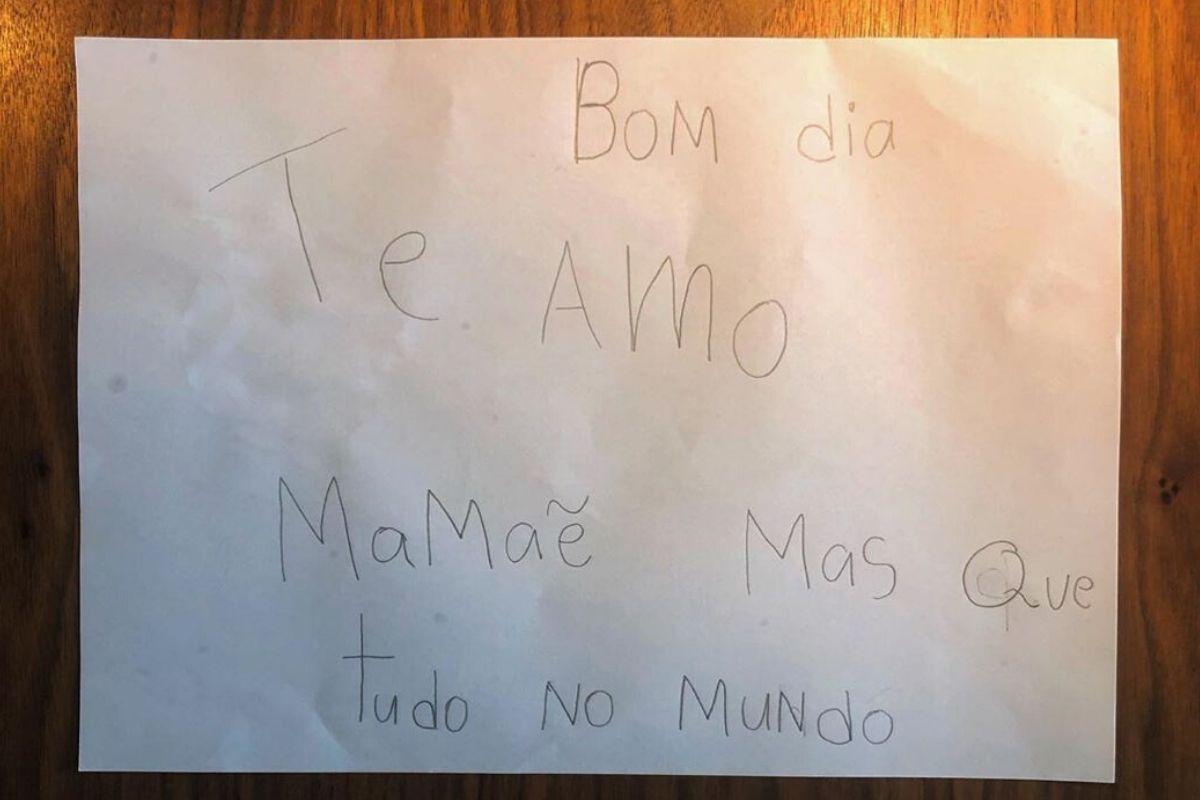 Bom dia
Te AMO
MaMaẽ Mas Que
tudo NO MUNdo